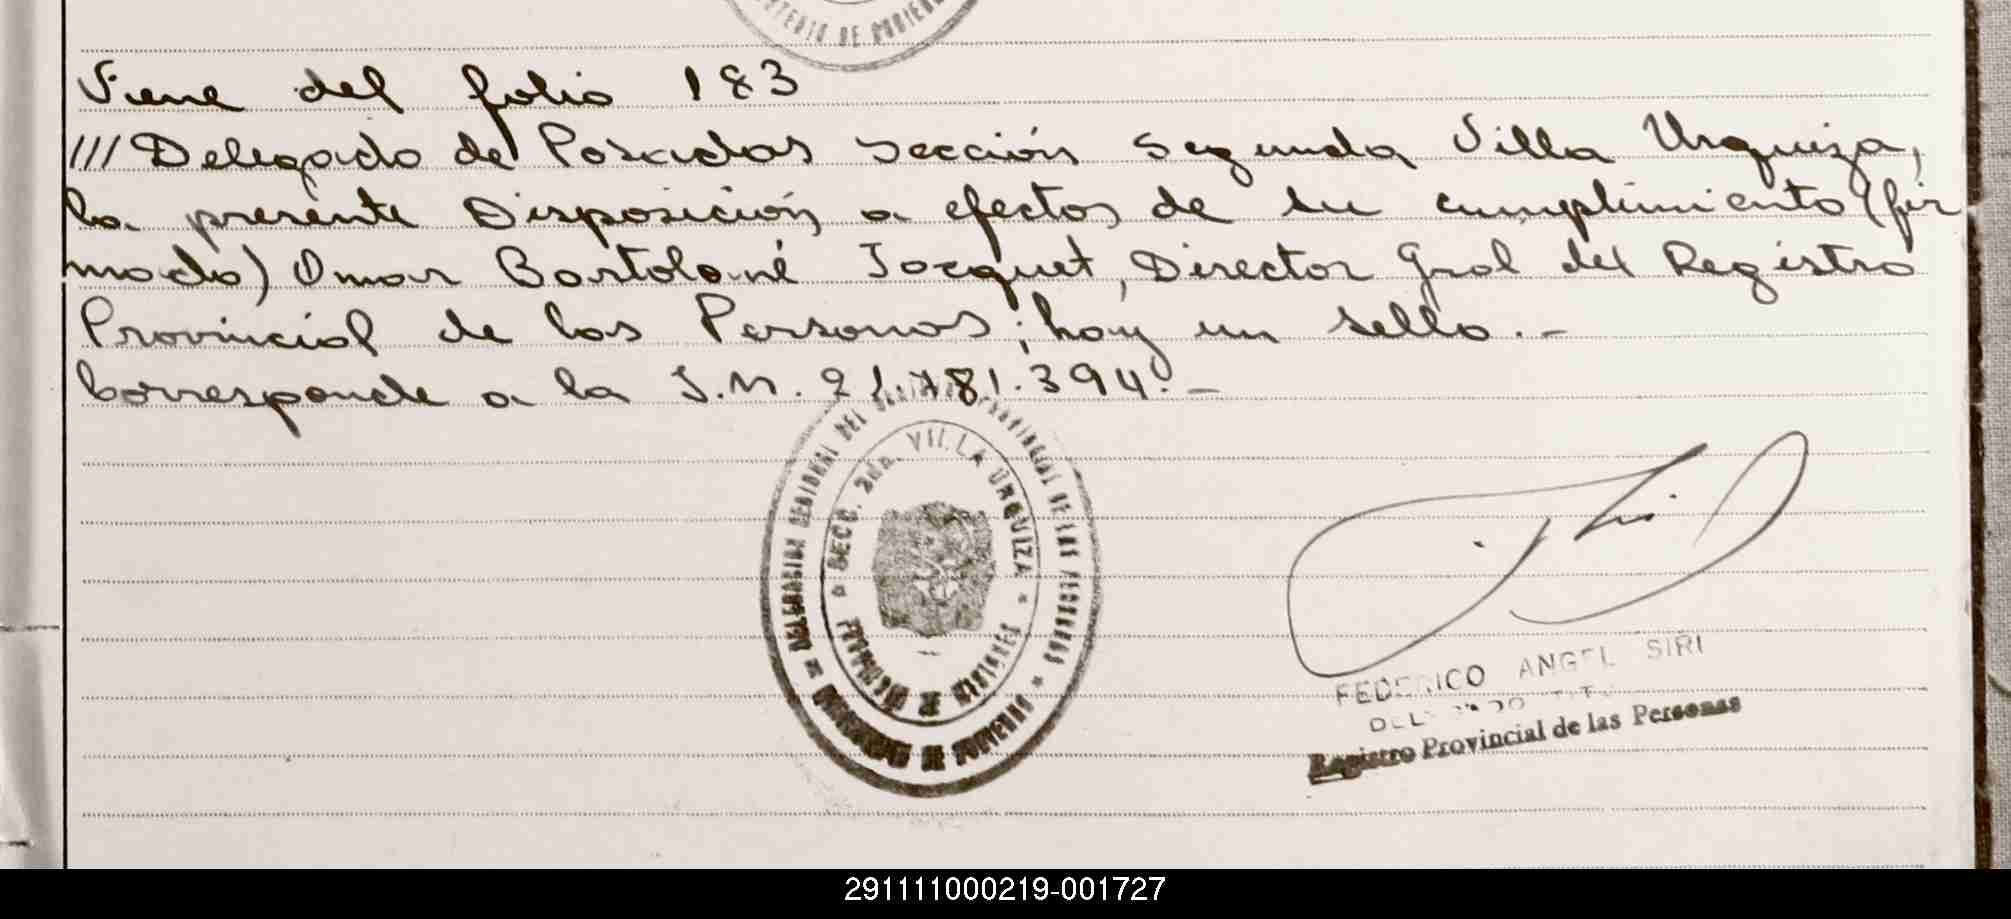 MINISTERIO DE GOBIERNO
Viene del folio 183
///Delegado de Posadas sección segunda Villa Urquiza,
la presente Disposición a efectos de su cumplimiento (fir
mado) Omar Bartolomé Jacquet, Director Gral del Registro
Provincial de las Personas; hay un sello.-
Corresponde a la I.M. 21.781.394.-
DELEGACION REGIONAL DEL REGISTRO PROVINCIAL DE LAS PERSONAS
SECC. 2da. VILLA URQUIZA
MISIONES
DE GOBIERNO
FEDERICO ANGEL SIRI
Registro Provincial de las Personas
291111000219-001727